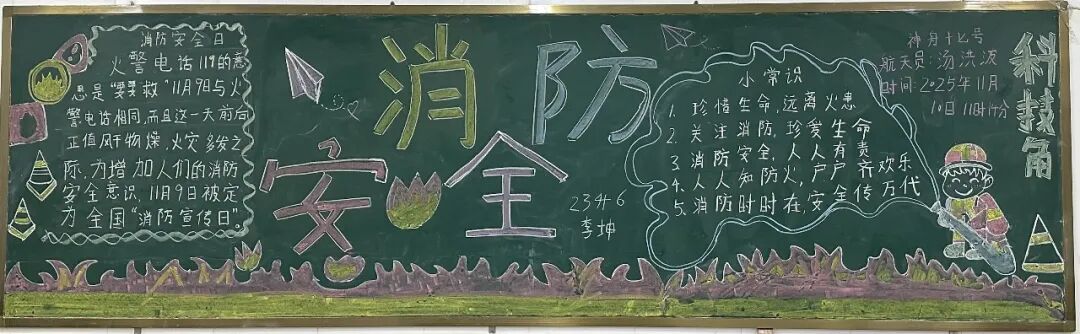 消防安全日
火警电话119的意
思是“要要救”11月9日与火
警电话相同,而且这一天前后
正值风干物燥,火灾多发之
际,为增加人们的消防
安全意识,11月9日被定
为全国“消防宣传日”。
消防
安全
23升6
李坤
小常识
1. 珍惜生命,远离火患
2. 关注消防,珍爱生命
3. 消防安全,人人有责
4. 人人知防火,户户齐欢乐
5. 消防时时在,安全传万代
神舟十七号
航天员:汤洪波
时间:2025年11月
10日11时1分
科技角